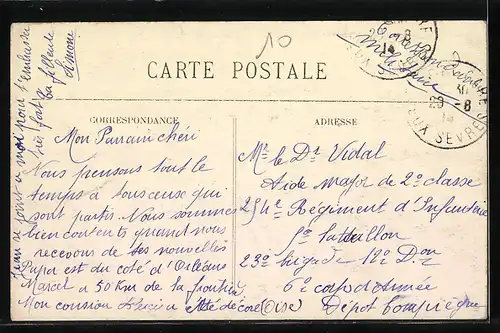 10
Correspondance
militaire
CARTE POSTALE
CORRESPONDANCE
Mon Parrain chéri
Nous pensons tout le
temps à tous ceux qui
sont partis. Nous sommes
bien contents quand nous
recevons de tes nouvelles
Papa est du coté d'Orléans
Marcel a 50 Km de la frontière
Mon cousin
Jean se joint a moi pour t'embrasser
très fort ta filleule
Simone
ADRESSE
Mr. le Dr. Vidal
Aide Major de 2e classe
254e Regiment d'Infanterie
5e bataillon
23e brigade 12e Don
6e corps d'armée
(Oise) Dépôt Compiègne
29 -8
14
DEUX SEVRES